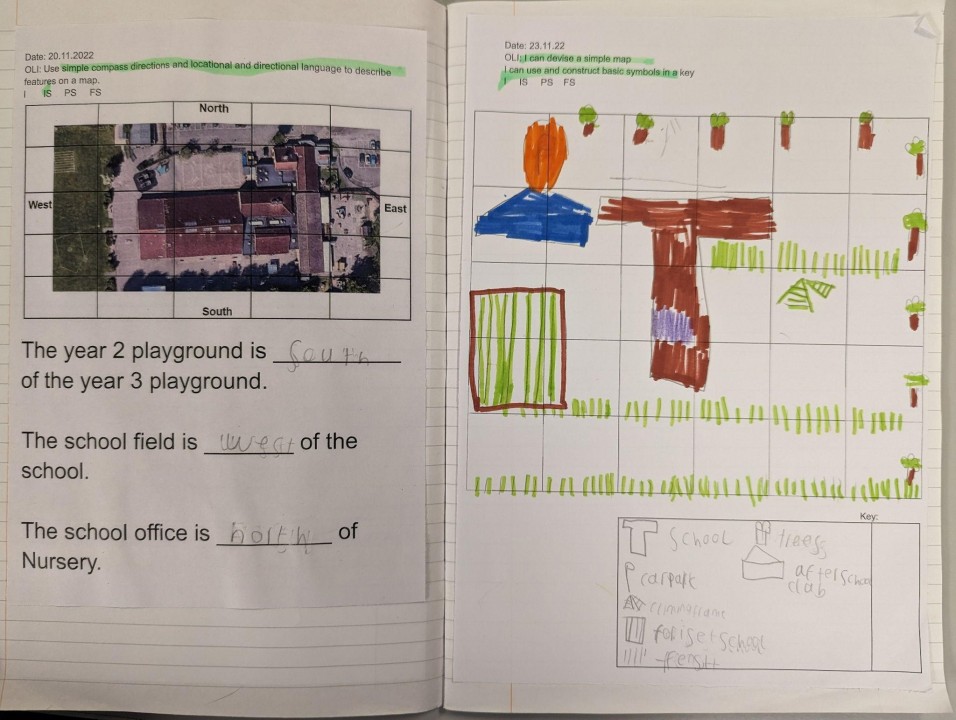 Date: 20.11.2022
OLI: Use simple compass directions and locational and directional language to describe
features on a map.
I IS PS FS
North
West
East
South
The year 2 playground is south
of the year 3 playground.
The school field is west of the
school.
The school office is north of
Nursery.
Date: 23.11.22
OLI: I can devise a simple map
I can use and construct basic symbols in a key
I IS PS FS
Key:
School
carpark
school
afterschool
club